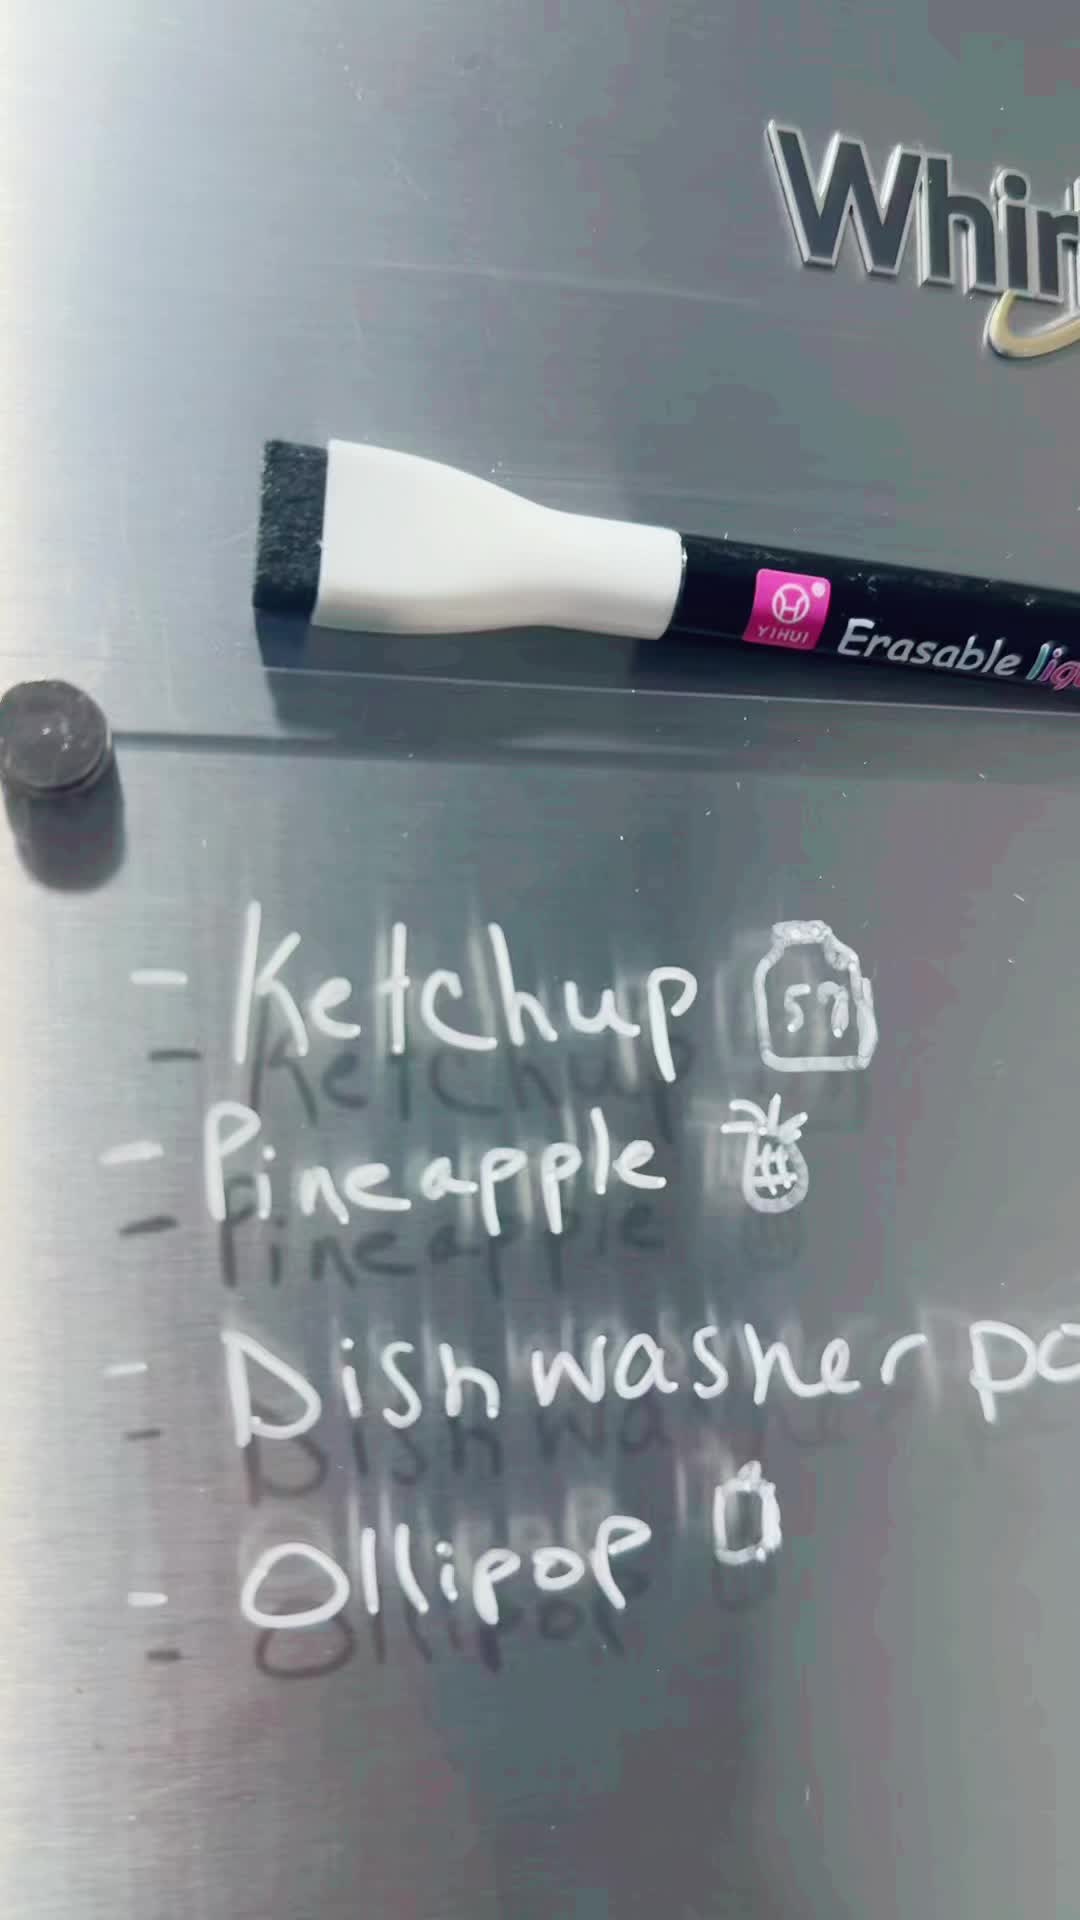 Whir
YIHUI
Erasable liq
- Ketchup 57
- Pineapple
- Dishwasher po
- Ollipop